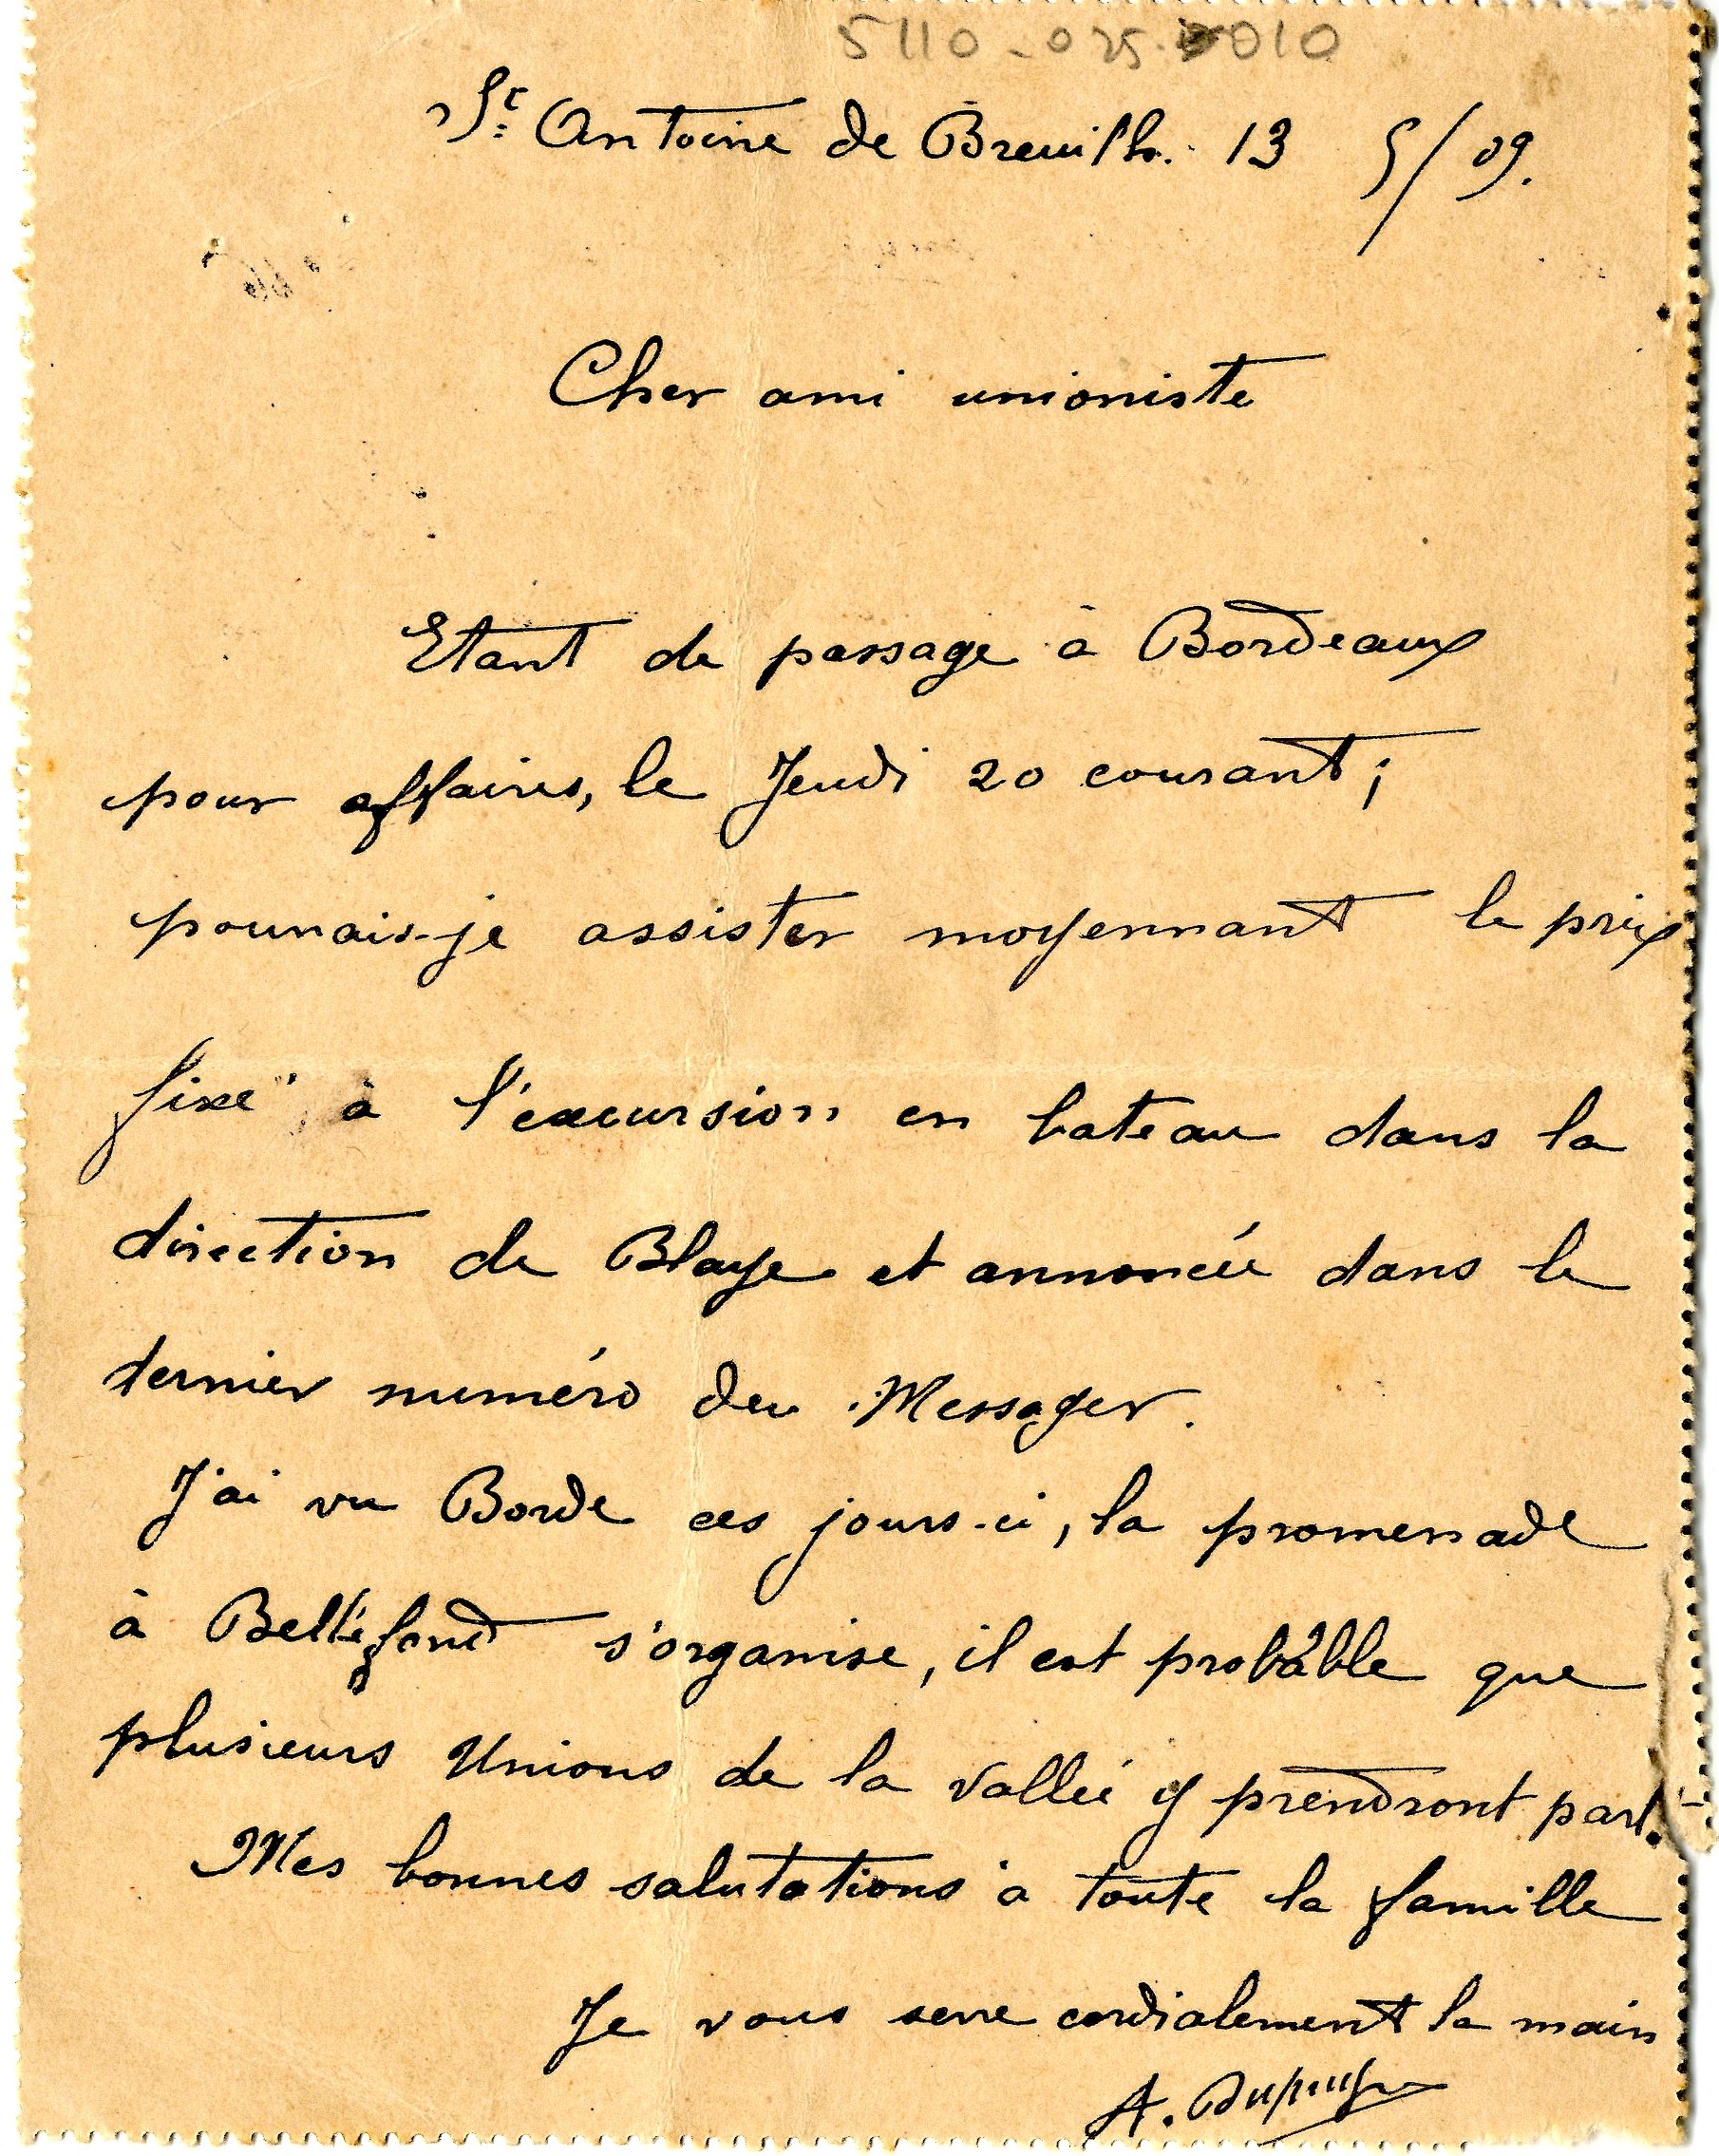 5110-025-010
St: Antoine de Breuilh. 13 5/09.
Cher ami unioniste
Etant de passage à Bordeaux
pour affaires, le Jeudi 20 courant;
pourrais-je assister moyennant le prix
fixé à l'excursion en bateau dans la
direction de Blaye et annoncée dans le
dernier numéro du Messager.
J'ai vu Borde ces jours-ci, la promenade
à Bellefond s'organise, il est probable que
plusieurs Unions de la Vallée y prendront part.
Mes bonnes salutations à toute la famille
Je vous serre cordialement la main
A. Dupuy